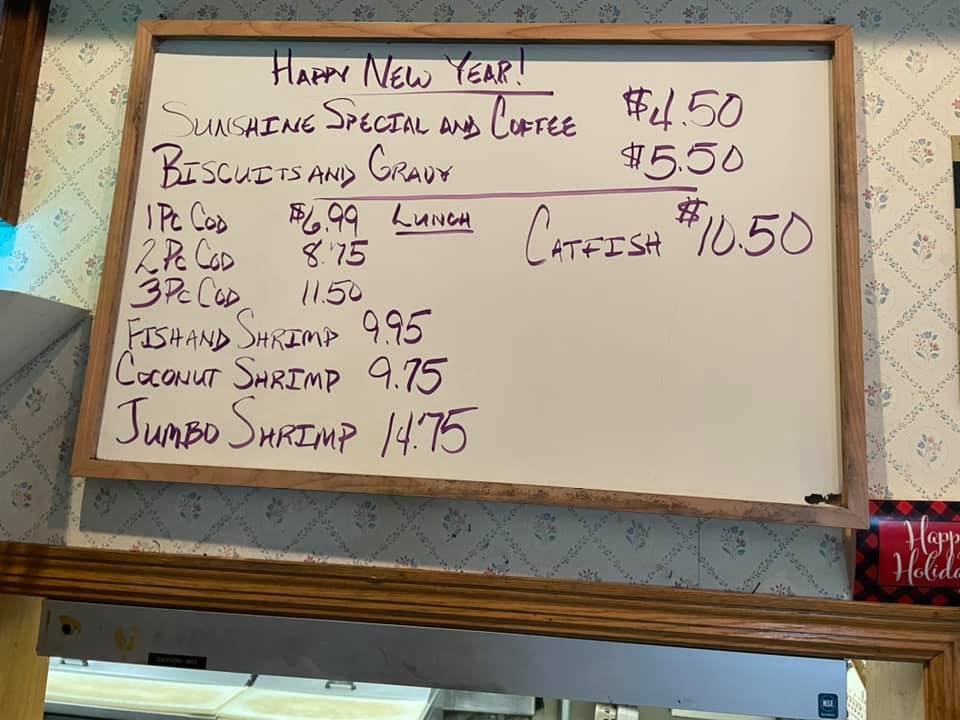 HAPPY NEW YEAR!
SUNSHINE SPECIAL AND COFFEE $4.50
BISCUITS AND GRAVY $5.50
LUNCH
1 PC COD $6.99
2 PC COD 8.75
3 PC COD 11.50
FISH AND SHRIMP 9.95
COCONUT SHRIMP 9.75
JUMBO SHRIMP 14.75
CATFISH $10.50
Happy
Holida
NSF